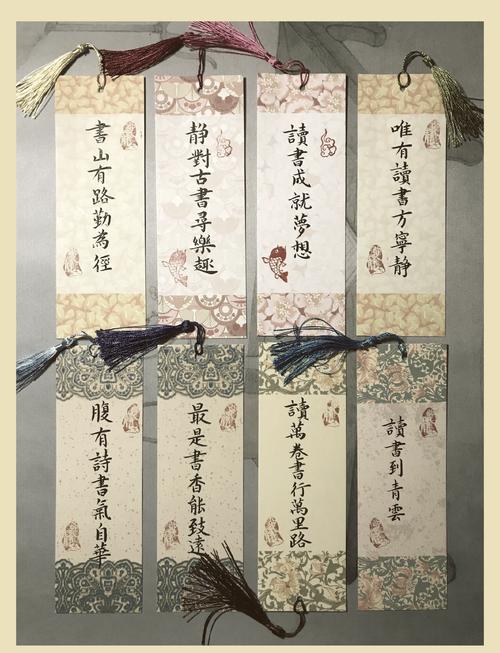 書山有路勤為徑
静對古書尋樂趣
讀書成就夢想
唯有讀書方寧靜
腹有詩書氣自華
最是書香能致遠
讀萬卷書行萬里路
讀書到青雲